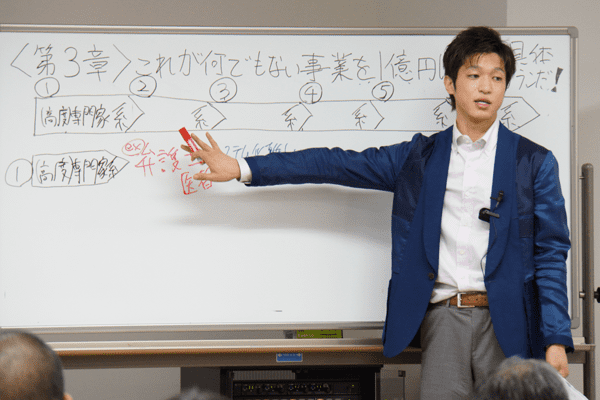 〈第3章〉これが何でもない事業を1億円 具体
! 
① ② ③ ④ ⑤
高度専門家系 系 系 系 系 系
① 高度専門家系 ex) 弁護
医者